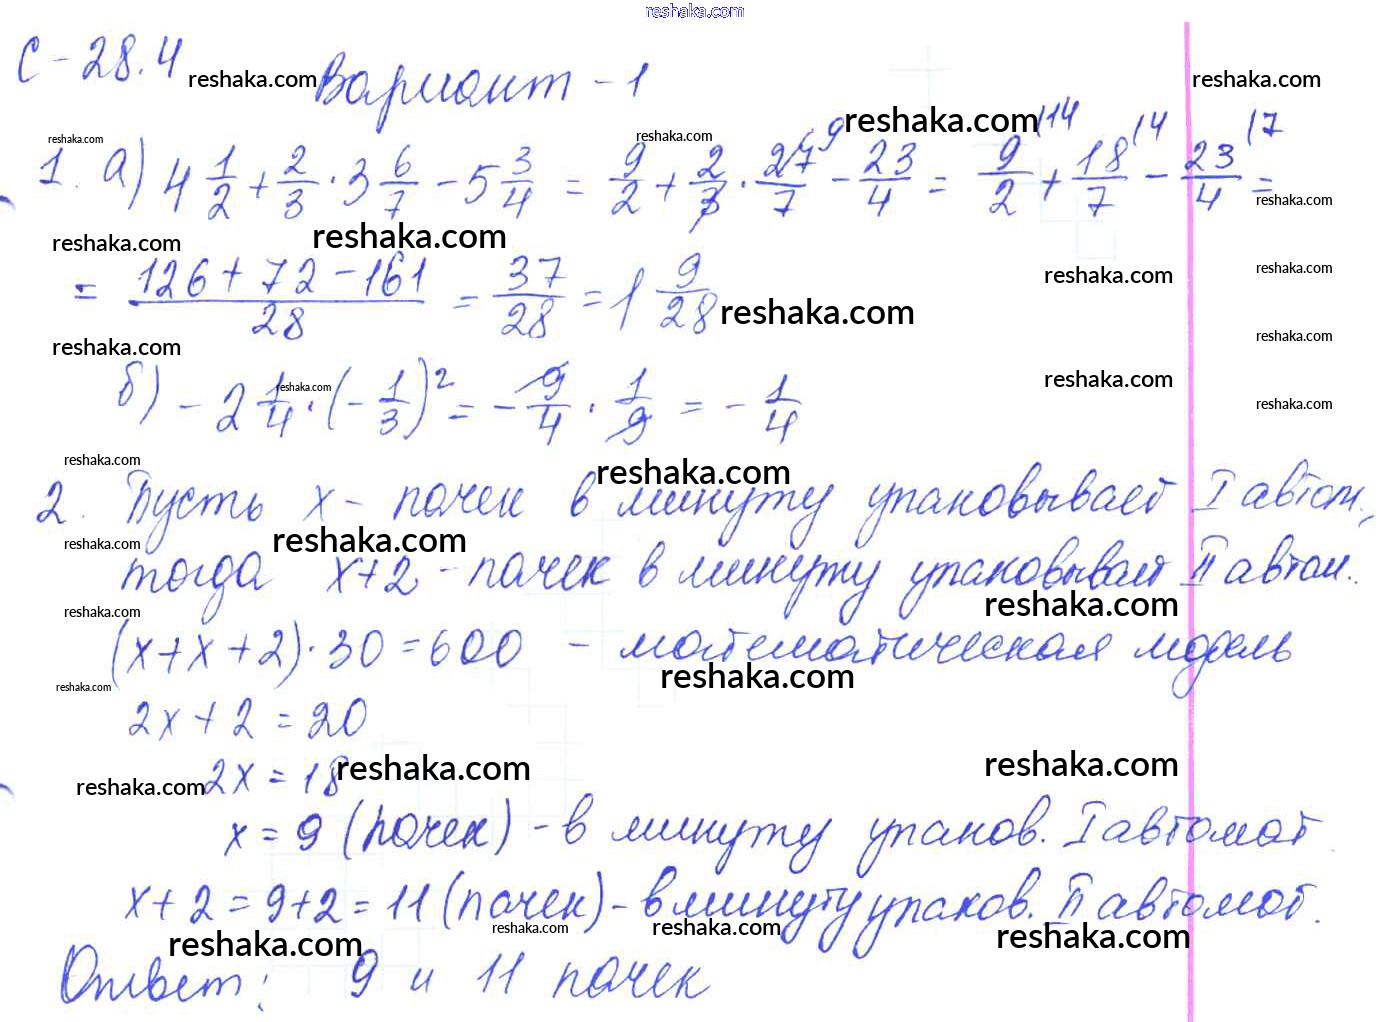 reshaka.com
С-28.4 reshaka.com Вариант-1 reshaka.com
reshaka.com reshaka.com reshaka.com
1. а) 4 1/2 + 2/3 · 3 6/7 - 5 3/4 = 9/2 + 2/3 · 27/7 ⁹ - 23/4 = 9/2 |14 + 18/7 |4 - 23/4 |7 =
reshaka.com reshaka.com reshaka.com
= (126 + 72 - 161)/28 = 37/28 = 1 9/28 reshaka.com reshaka.com reshaka.com
reshaka.com reshaka.com
б) - 2 1/4 · (- 1/3)² = - 9/4 · 1/9 = - 1/4 reshaka.com reshaka.com reshaka.com
reshaka.com reshaka.com
2. Пусть х - пачек в минуту упаковывает I автом.,
reshaka.com reshaka.com
тогда х+2 - пачек в минуту упаковывает II автом.
reshaka.com reshaka.com
(х+х+2)·30=600 - математическая модель
reshaka.com reshaka.com
2х+2=20
2х=18 reshaka.com reshaka.com reshaka.com
х=9 (пачек) - в минуту упаков. I автомат
х+2=9+2=11 (пачек) - в минуту упаков. II автомат.
reshaka.com reshaka.com reshaka.com reshaka.com
Ответ: 9 и 11 пачек